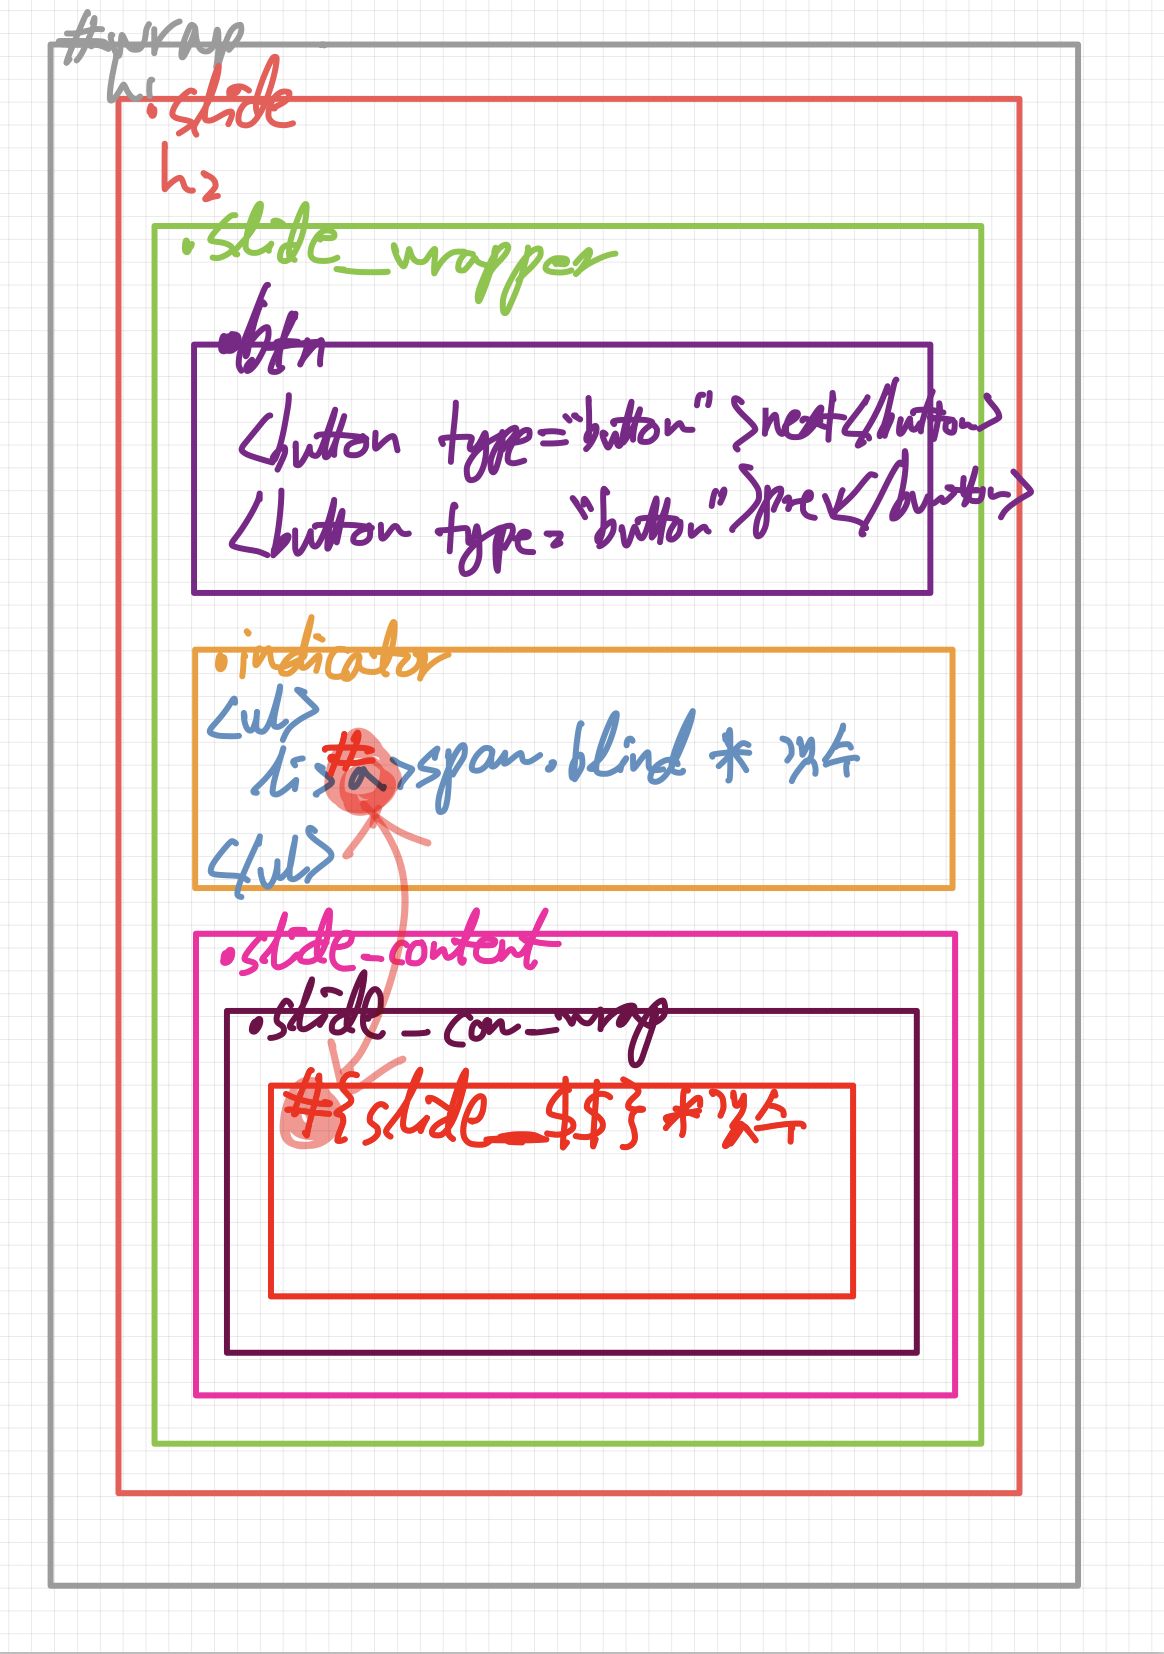 #wrap
h1
.slide
h2
.slide_wrapper
.btn
<button type="button">next</button>
<button type="button">prev</button>
.indicator
<ul>
li>a>span.blind * 갯수
#
</ul>
.slide_content
.slide_con_wrap
#{slide_$$}*갯수